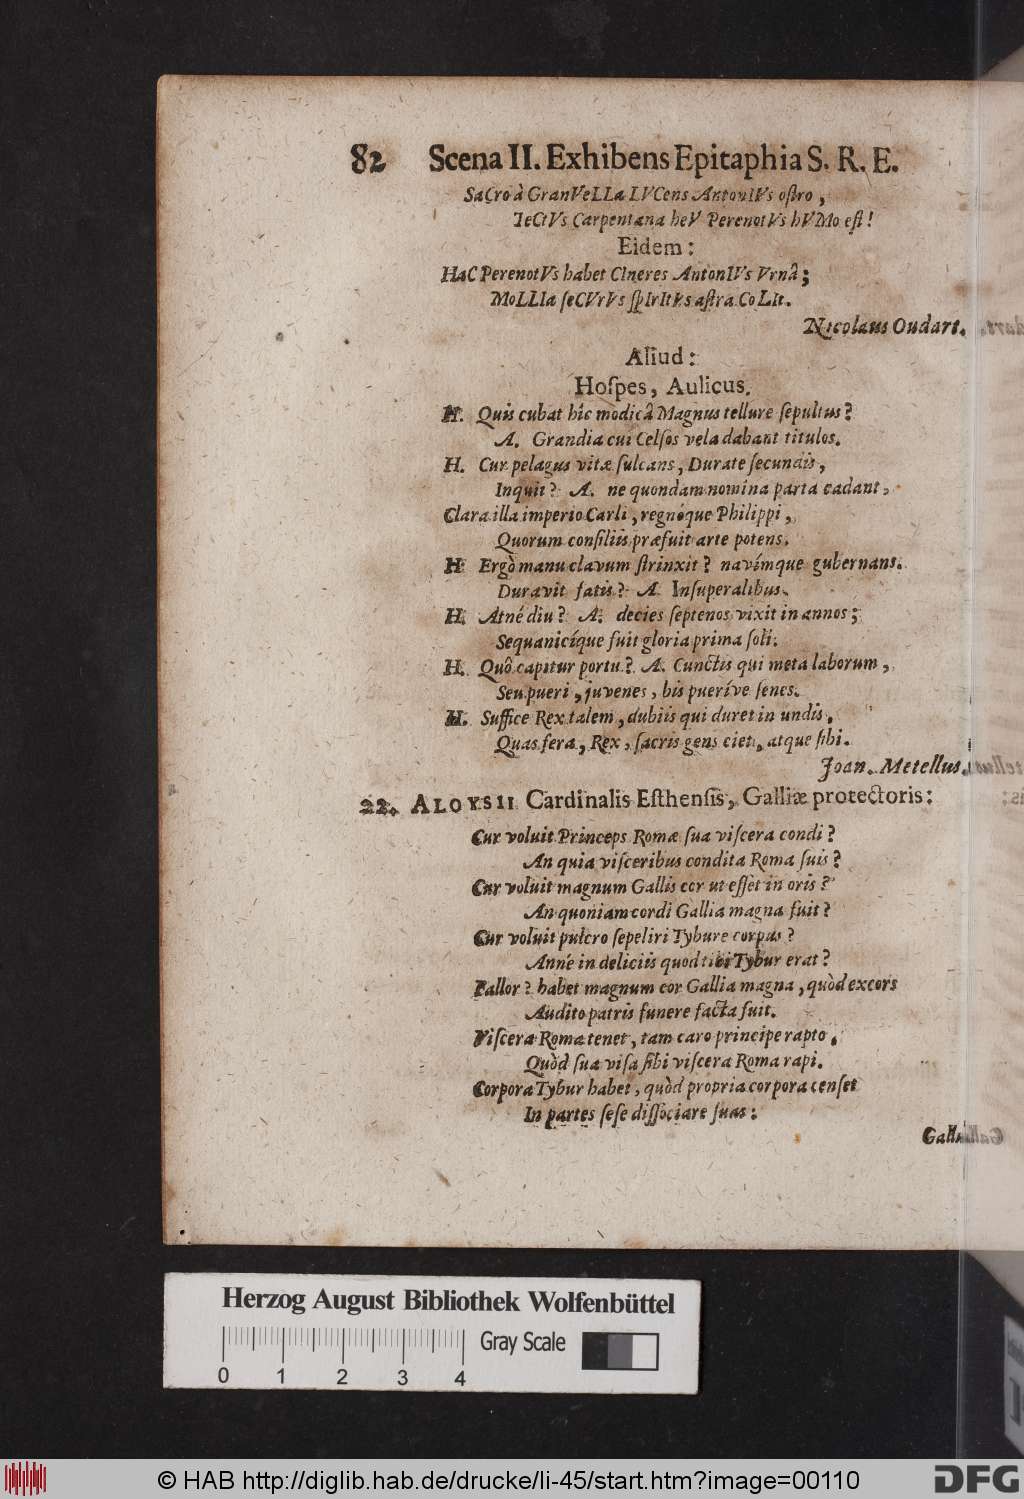 82 Scena II. Exhibens Epitaphia S. R. E.
SaCro à GranVeLLa LVCens AntonIVs ostro,
IeCtVs Carpentana heV PerenotVs hVMo est!
Eidem:
HaC PerenotVs habet CIneres AntonIVs Vrnâ;
MoLLIa seCVrVs spIrItVs astra CoLIt.
Nicolaus Oudart.
Aliud:
Hoſpes, Aulicus.
H. Quis cubat hîc modicâ Magnus tellure ſepultus?
A. Grandia cui Celſos vela dabant titulos.
H. Cur pelagus vitæ ſulcans, Durate ſecundis,
Inquit? A. ne quondam nomina parta cadant,
Clara illa imperio Carli, regnóque Philippi,
Quorum conſiliis præfuit arte potens.
H Ergò manu clavum ſtrinxit? navímque gubernans.
Duravit ſatis? A. Inſuperalibus.
H. Atné diu? A. decies ſeptenos vixit in annos;
Sequanicíque fuit gloria prima ſoli.
H. Quô capitur portu? A. Cunctis qui meta laborum,
Seu pueri, juvenes, bis pueríve ſenes.
H. Suffice Rex talem, dubiis qui duret in undis,
Quas fera, Rex, ſacris gens ciet, atque ſibi.
Joan. Metellus.
22. ALOYSII Cardinalis Eſthenſis, Galliæ protectoris:
Cur voluit Princeps Romæ ſua viſcera condi?
An quia viſceribus condita Roma ſuis?
Cur voluit magnum Gallis cor ut eſſet in oris?
An quoniam cordi Gallia magna fuit?
Cur voluit pulcro ſepeliri Tybure corpus?
Anné in deliciis quod tibi Tybur erat?
Fallor? habet magnum cor Gallia magna, quòd excors
Audito patris funere facta fuit.
Viſcera Roma tenet, tam caro principe rapto,
Quòd ſua viſa ſibi viſcera Roma rapi.
Corpora Tybur habet, quòd propria corpora cenſet
In partes ſeſe diſſociare ſuas:
Herzog August Bibliothek Wolfenbüttel
Gray Scale
0 1 2 3 4
© HAB http://diglib.hab.de/drucke/li-45/start.htm?image=00110
DFG